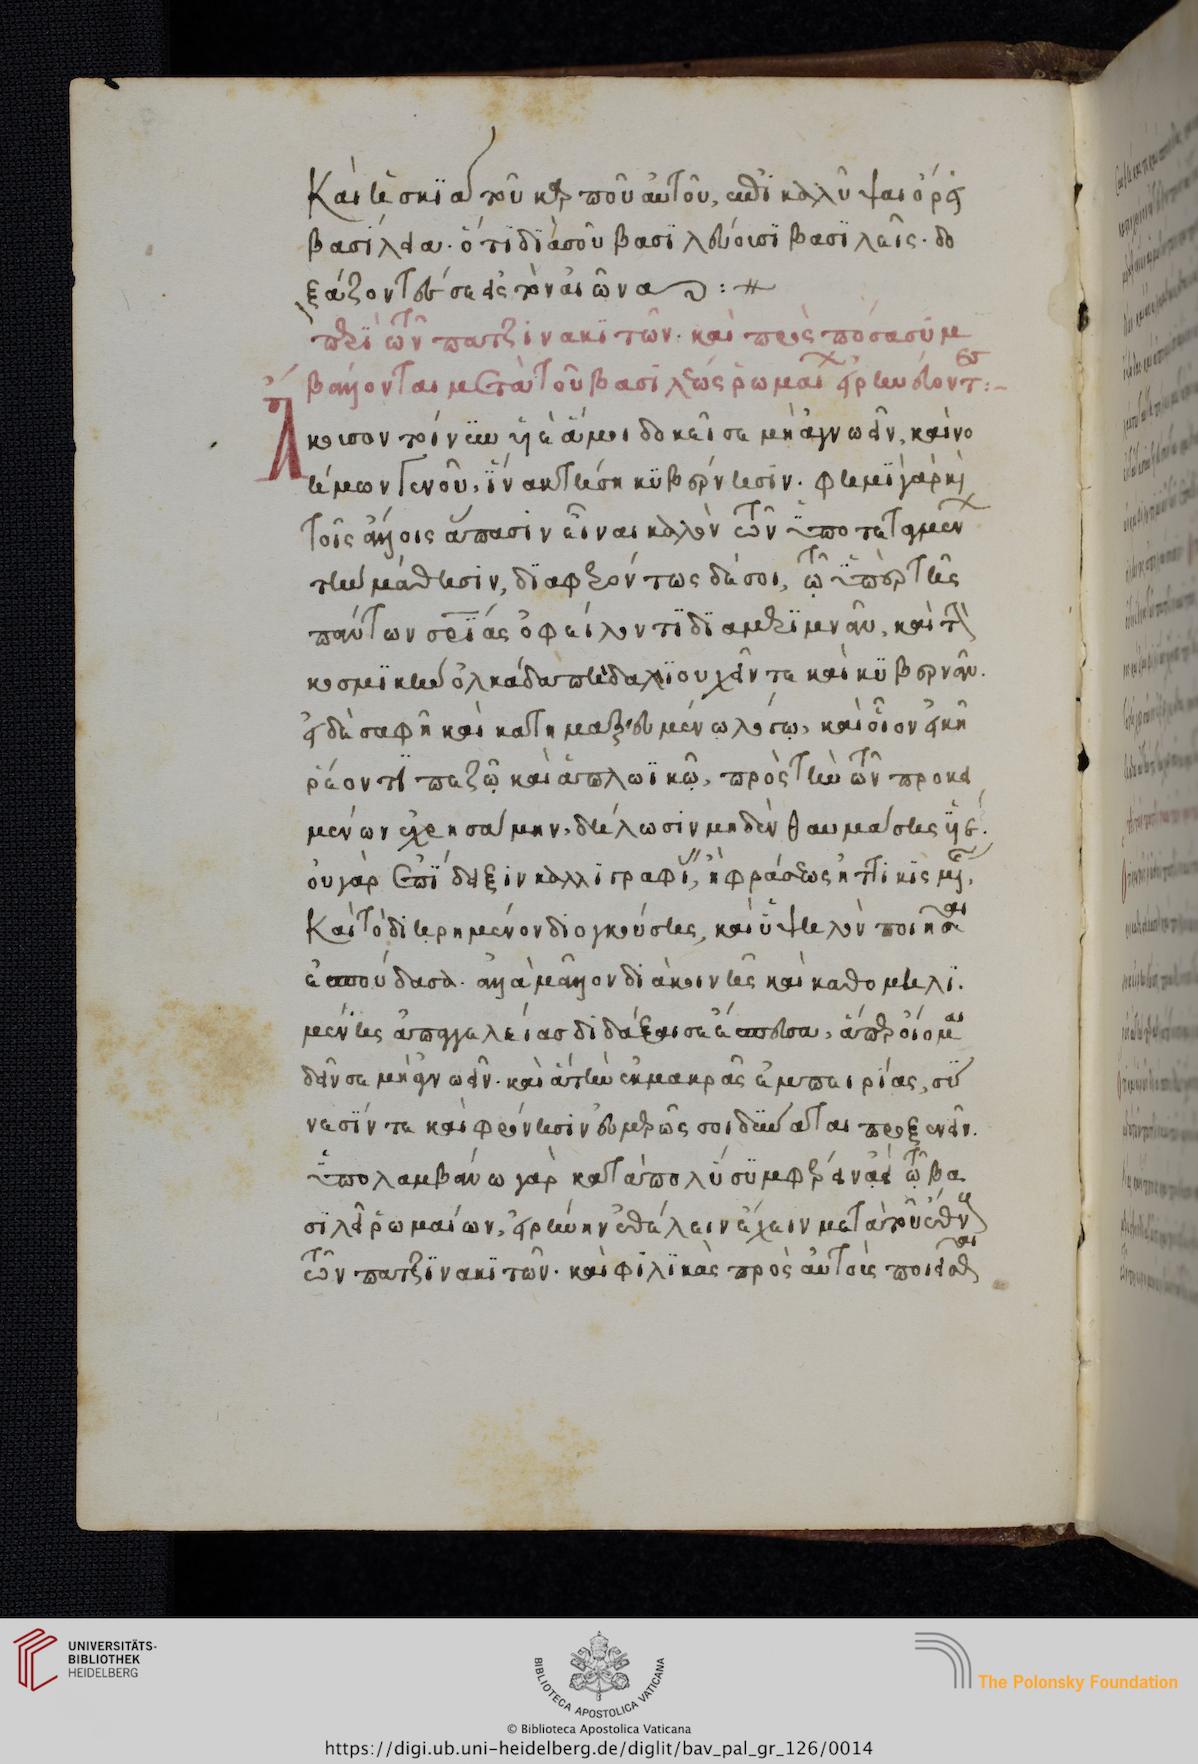 Καὶ ἡ σκιὰ τοῦ καρποῦ αὐτοῦ, ἐπικαλύψαι ὄρη
βασιλεία· ὅτι διὰ σοῦ βασιλεύουσι βασιλεῖς· δο
ξάζοντές σε εἰς τὸν αἰῶνα
περὶ τῶν πατζινακιτῶν· καὶ πρὸς πόσα συμ
βάλλονται μετὰ τοῦ βασιλέως ῥωμαίων εἰρηνεύοντες:-
Ἄκουσον τοίνυν υἱέ ἅ μοι δοκεῖ σε μὴ ἀγνοεῖν, καὶ νο
ήμων γενοῦ, ἵνα κτήσῃ κυβέρνησιν· φημὶ γὰρ καὶ
τοῖς ἄλλοις ἅπασιν εἶναι καλὸν τῶν ὑποτεταγμένων
τὴν μάθησιν, διαφερόντως δέ σοι, τῷ ὑπὲρ τῆς
πάντων σωτηρίας ὀφείλοντι διαμεριμνᾶν, καὶ τὴν
κοσμικὴν ὁλκάδα πηδαλιουχεῖν τε καὶ κυβερνᾶν.
εἰ δὲ σαφῆ καὶ κατημαξευμένῳ λόγῳ, καὶ οἷον εἰκῆ
ῥέοντι πεζῷ καὶ ἁπλωϊκῷ, πρὸς τὴν τῶν προκει
μένων ἐχρησάμην, δήλωσιν μηδὲν θαυμάσῃς υἱέ.
οὐ γὰρ ἐπίδειξιν καλλιγραφίας, ἢ φράσεως ἠττικισμένης,
Καὶ τὸ διῃρημένον διογκούσης, καὶ ὑψηλὸν ποιῆσαι
ἐσπούδασα· ἀλλὰ μᾶλλον διὰ κοινῆς καὶ καθομηλι
μένης ἀπαγγελείας διδάξαι σε ἔσπευσα, ἅπερ οἴομαι
δεῖν σε μὴ ἀγνοεῖν· καὶ ἃ τὴν ἐκ μακρᾶς ἐμπειρίας, σύ
νεσίν τε καὶ φρόνησιν εὐμαρῶς σοι δύναται προξενεῖν.
ὑπολαμβάνω γὰρ κατὰ πολὺ συμφέρειν ἀεὶ τῷ βα
σιλεῖ ῥωμαίων, εἰρήνην ἐθέλειν ἔχειν μετὰ τοῦ ἔθνους
τῶν πατζινακιτῶν· καὶ φιλικὰς πρὸς αὐτοὺς ποιεῖσθαι
UNIVERSITÄTS-
BIBLIOTHEK
HEIDELBERG
BIBLIOTECA APOSTOLICA VATICANA
The Polonsky Foundation
© Biblioteca Apostolica Vaticana
https://digi.ub.uni-heidelberg.de/diglit/bav_pal_gr_126/0014